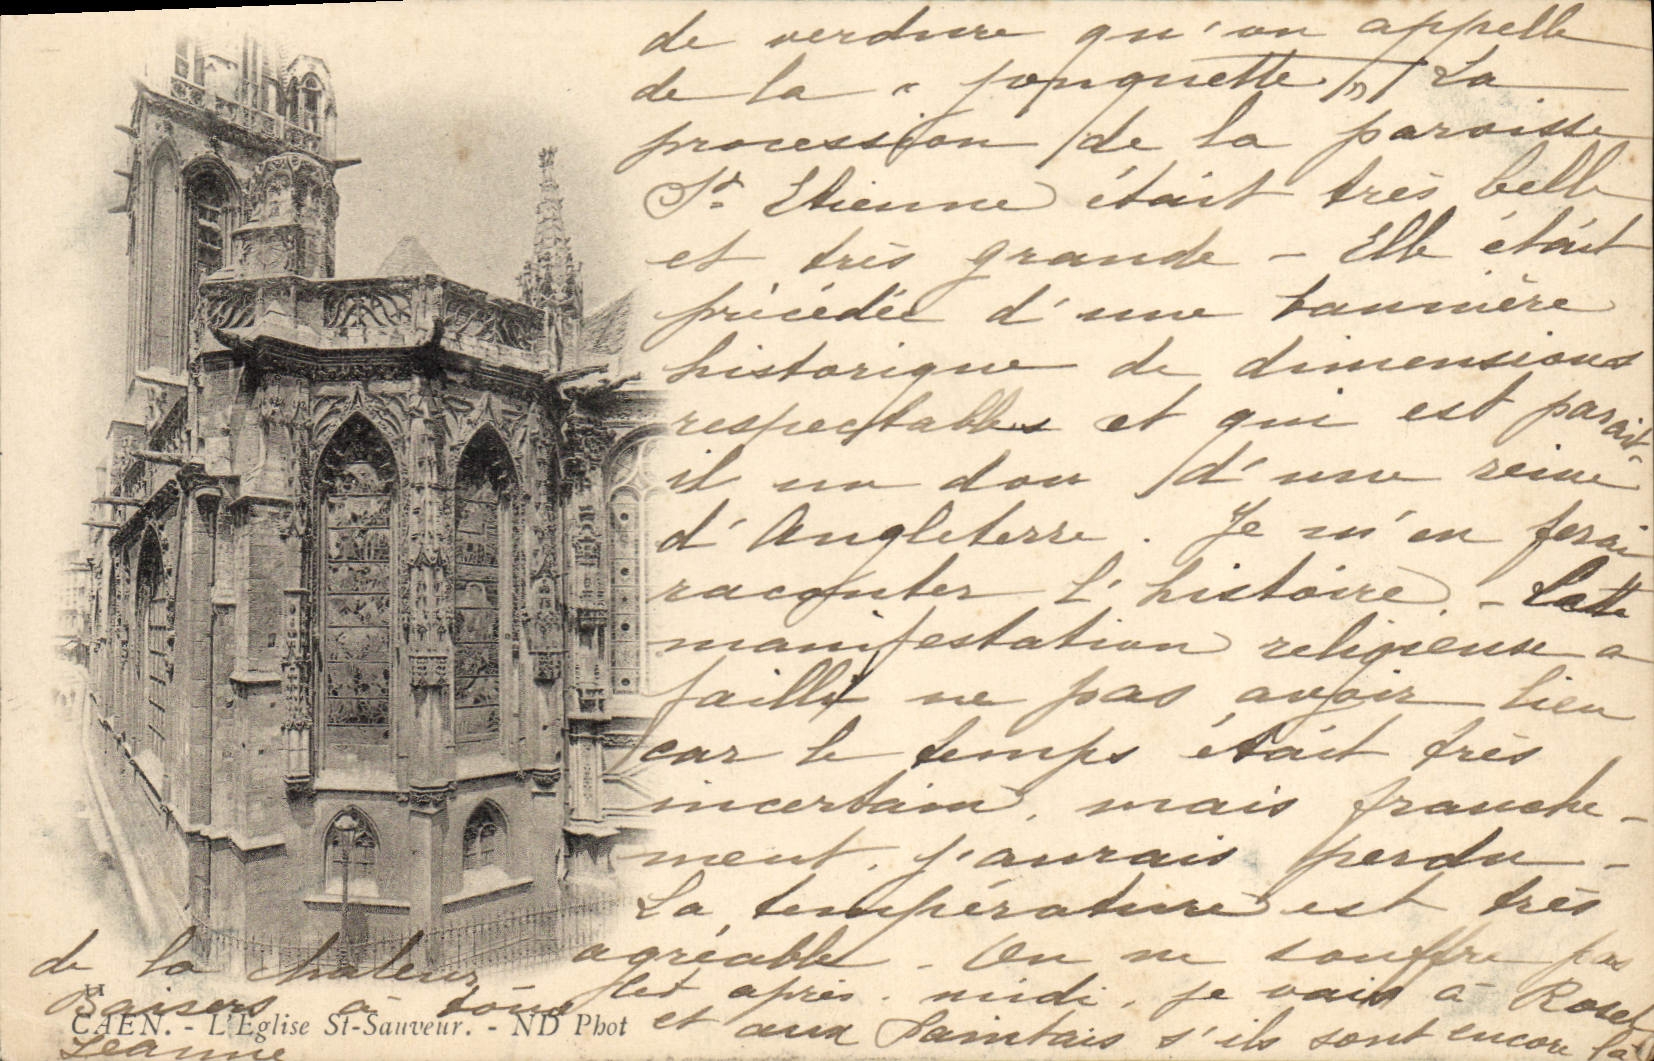 de verdure qu'on appelle
de la « jonquette » La
procession de la paroisse
St Etienne était très belle
et très grande - Elle était
précédée d'une bannière
historique de dimensions
respectables et qui est parait-
il un don d'une reine
d'Angleterre. Je m'en ferai
raconter l'histoire. - Cette
manifestation religieuse a
failli ne pas avoir lieu
car le temps était très
incertain, mais franche-
ment, j'aurais perdu -
La température est très
agréable - On ne souffre pas
de la chaleur
Cet après-midi, je vais à Rosel
et aux s'ils sont encore là
Baisers à tous
Jeanne
CAEN. - L'Eglise St-Sauveur. - ND Phot